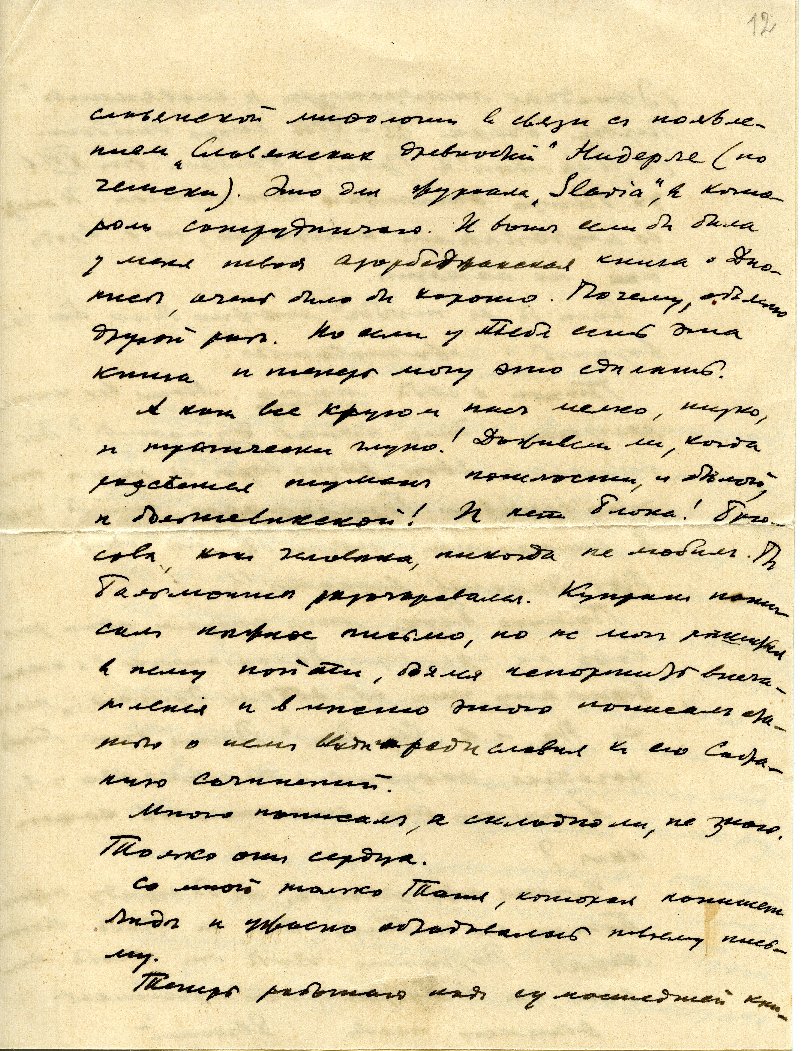 12
славянской мифологии в связи съ появле-
нием „Славянских древностей" Нидерле (по
чешски). Это для журнала „Slavia", в кото-
ром сотрудничаю. И вотъ если бы была
у меня твоя азербайджанская книга о Дио-
нисѣ, очень было бы хорошо. Почему, объясню
другой разъ. Но если у тебя есть эта
книга и теперь могу это сдѣлать.
А как все кругом насъ мелко,
и трагически глупо! Доживем ли, когда
разсѣется туманъ пошлости, и бѣлой,
и большевикской! И нет Блока! Брю-
сова, как человека, никогда не любилъ. Въ
Бальмонтѣ разочаровался. Куприн напи-
сал нѣжное письмо, но не мог
к нему пойти, боялся испортить впечат-
ления и вмѣсто этого написалъ ста-
тью о нем ради славия к его Собра-
нию сочинений.
Много написалъ, а складно ли, не знаю.
Только отъ сердца.
Со мной только Таня, которая напишет
и ужасно обрадовалась твоему пись-
му.
Теперь работаю надъ сумасшедшей кни-